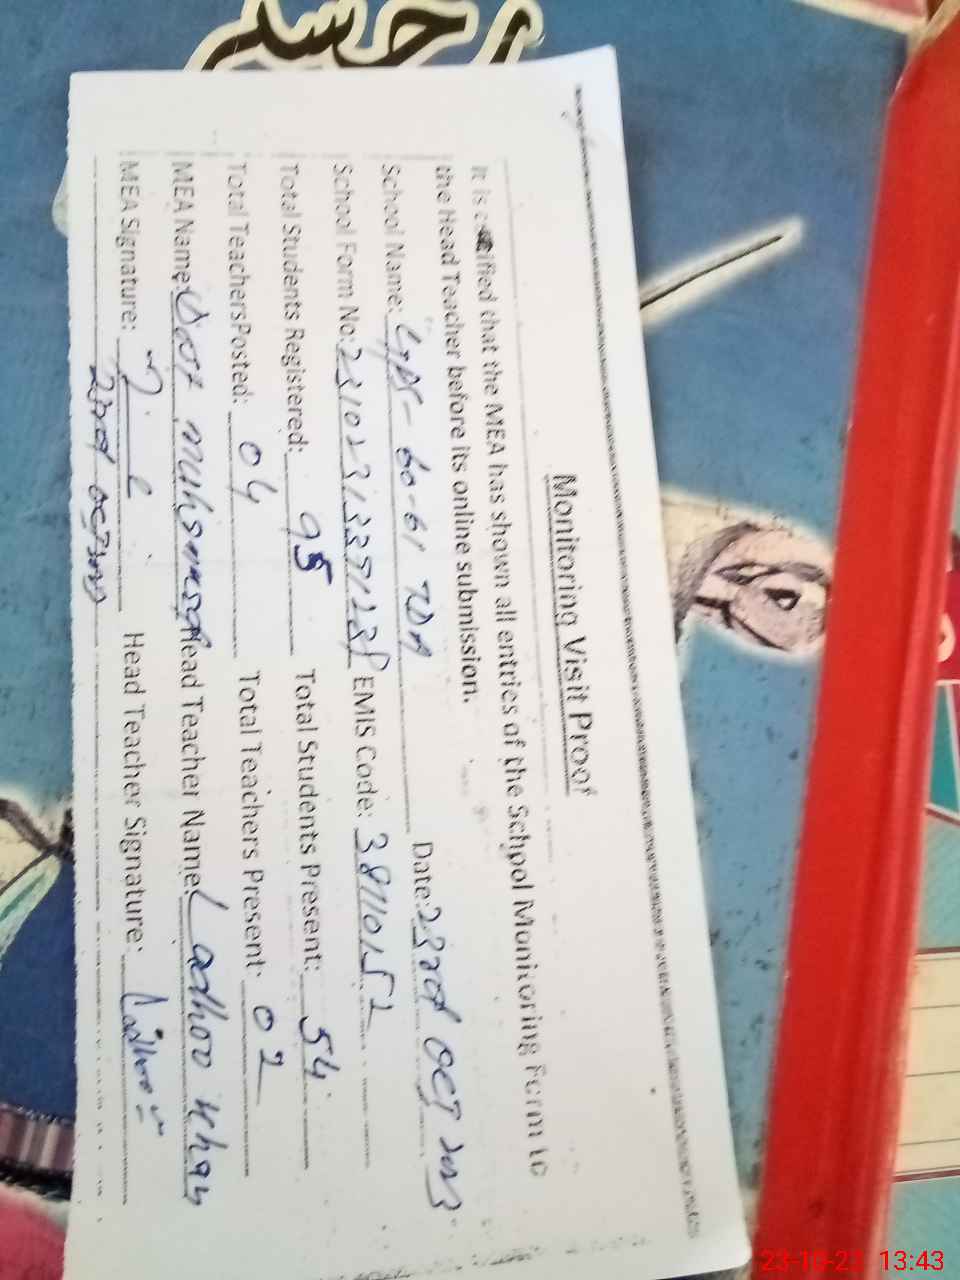 Monitoring Visit Proof
It is certified that the MEA has shown all entries of the School Monitoring Form to
the Head Teacher before its online submission.
School Name: GPS-60-61 7DA Date: 23rd OCT 2023
School Form No: EMIS Code:
Total Students Registered: 95 Total Students Present: 54
Total TeachersPosted: 04 Total Teachers Present: 02
MEA Name: Dost muhammad Head Teacher Name: Ladhoo Khan
MEA Signature: Head Teacher Signature: Ladhoo
23rd
23-10-23 13:43